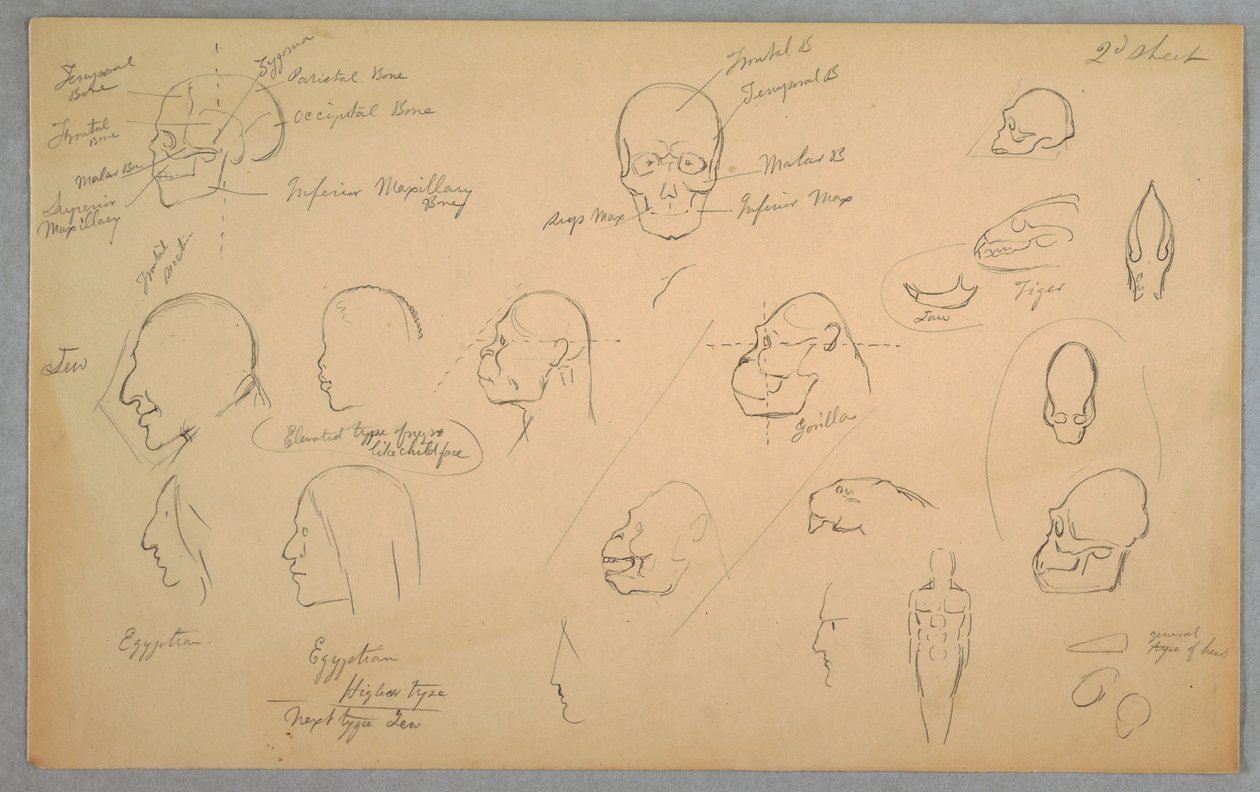 2d sheet
Temporal
Bone
Zygoma
Parietal Bone
Occipital Bone
Frontal
Bone
Malar Bone
Superior
Maxillary
Inferior Maxillary
Bone
Frontal B
Temporal B
Malar B
Inferior Max
Sup Max
Frontal
section
Jaw
Tiger
Jew
Elevated type of negro
like child face
Gorilla
Egyptian
Egyptian
Higher type
Next type Jew
general
type of head